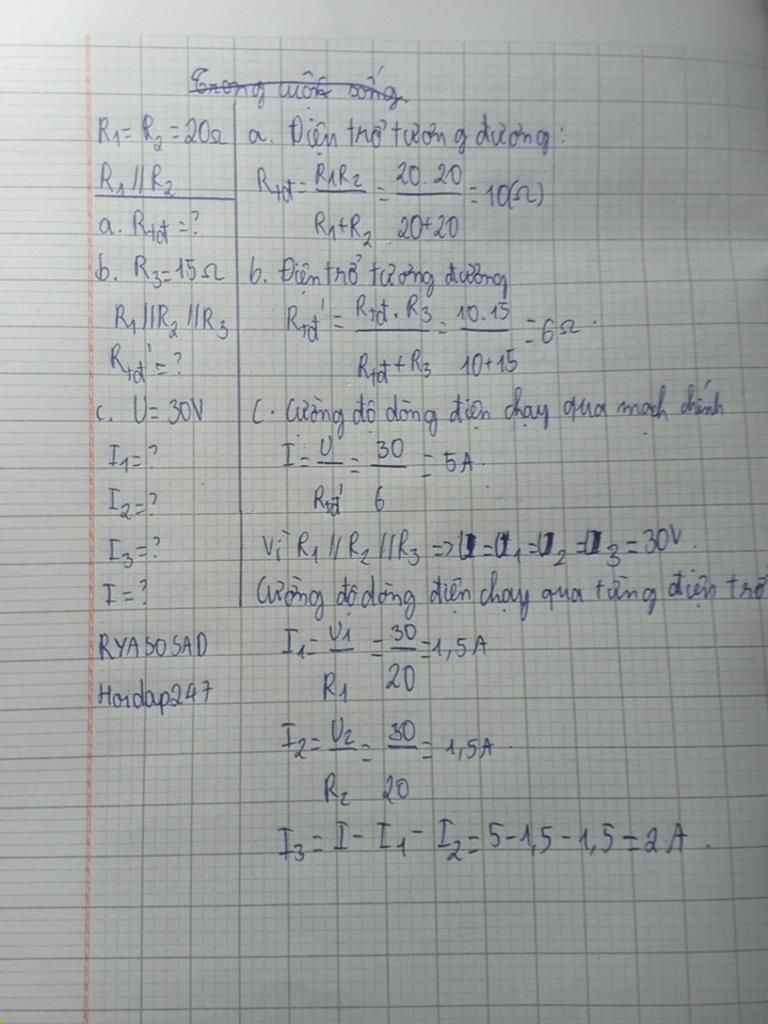 Trong cuộc sống.
R1 = R2 = 20Ω
R1 // R2
a. Rtđ = ?
b. R3 = 15Ω
R1 // R2 // R3
Rtđ' = ?
c. U = 30V
I1 = ?
I2 = ?
I3 = ?
I = ?
RYASOSAD
Hoidap247
a. Điện trở tương đương:
Rtđ = R1R2 / R1+R2 = 20.20 / 20+20 = 10(Ω)
b. Điện trở tương đương
Rtđ' = Rtđ.R3 / Rtđ+R3 = 10.15 / 10+15 = 6Ω.
C. Cường độ dòng điện chạy qua mạch chính
I = U / Rtđ' = 30 / 6 = 5A.
Vì R1 // R2 // R3 => U = U1 = U2 = U3 = 30V.
Cường độ dòng điện chạy qua từng điện trở
I1 = U1 / R1 = 30 / 20 = 1,5A
I2 = U2 / R2 = 30 / 20 = 1,5A.
I3 = I - I1 - I2 = 5 - 1,5 - 1,5 = 2A.